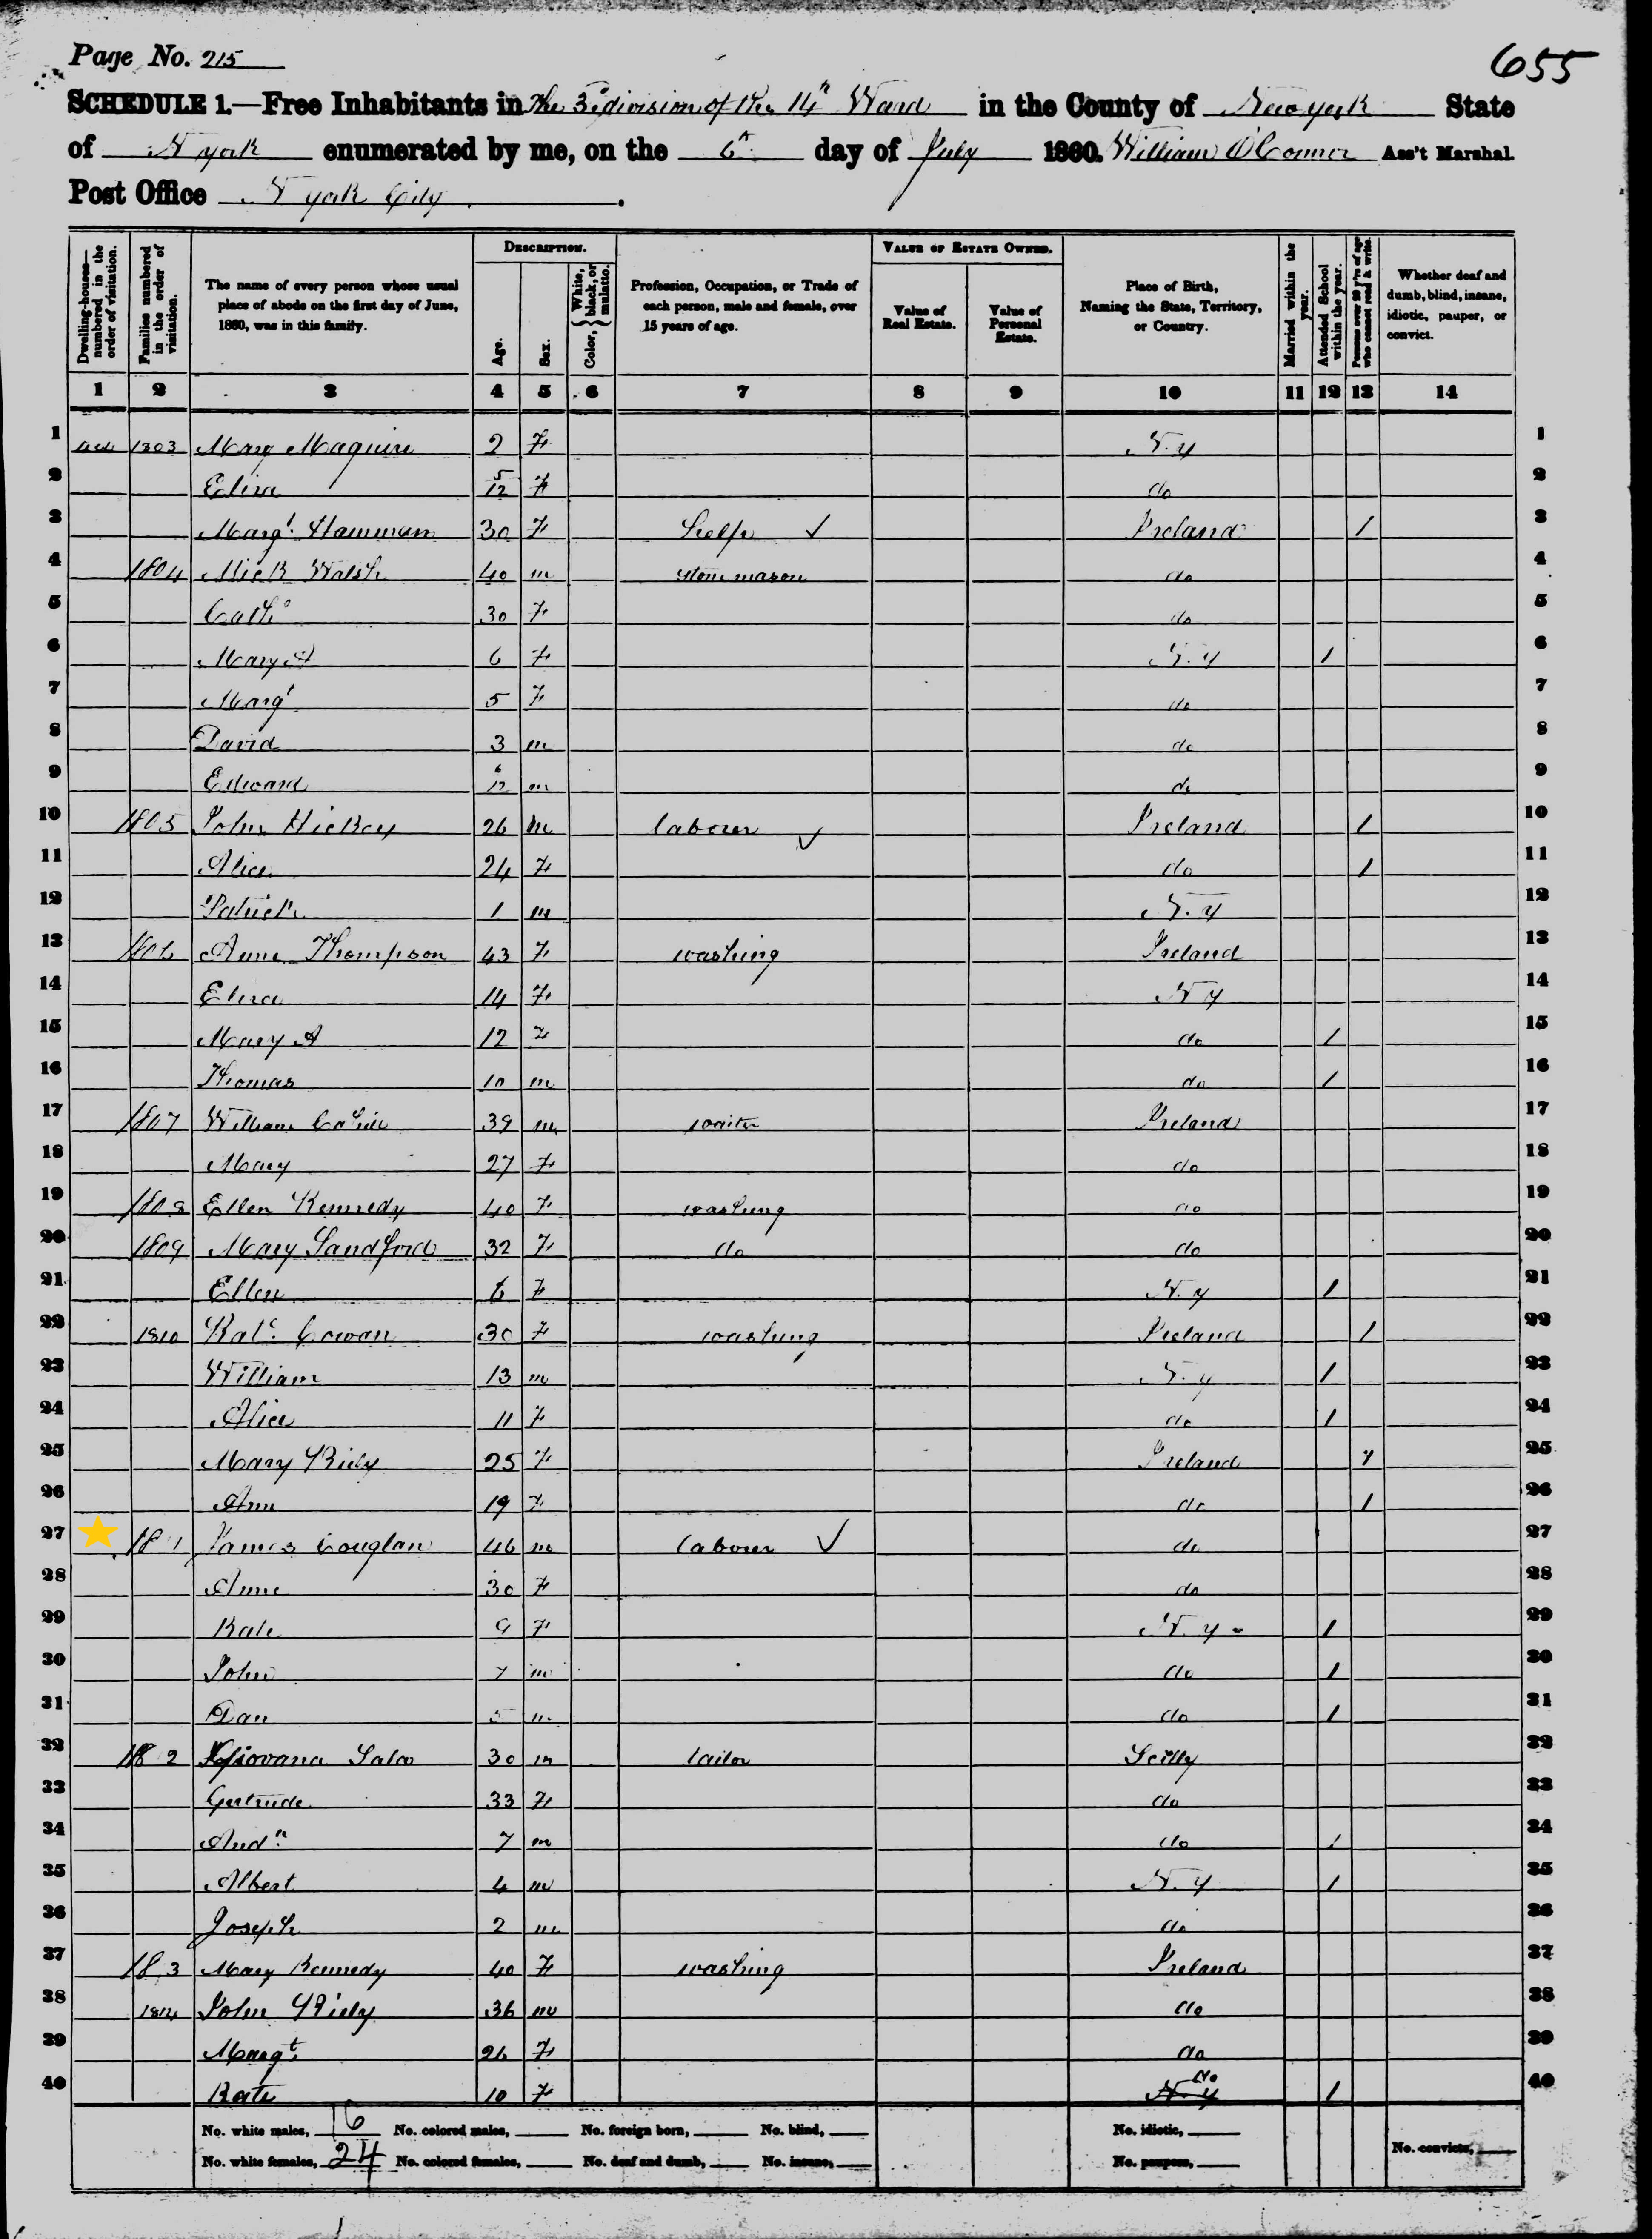 Page No. 215
655
SCHEDULE 1.—Free Inhabitants in the 3d division of the 14th Ward in the County of New york State
of N york enumerated by me, on the 6th day of July 1860. William O'Connor Ass't Marshal.
Post Office N york City.
Dwelling-houses—numbered in the order of visitation.
Families numbered in the order of visitation.
The name of every person whose usual place of abode on the first day of June, 1860, was in this family.
DESCRIPTION.
Age.
Sex.
Color, { White, black, or mulatto.
Profession, Occupation, or Trade of each person, male and female, over 15 years of age.
VALUE OF ESTATE OWNED.
Value of Real Estate.
Value of Personal Estate.
Place of Birth, Naming the State, Territory, or Country.
Married within the year.
Attended School within the year.
Persons over 20 y'rs of age who cannot read & write.
Whether deaf and dumb, blind, insane, idiotic, pauper, or convict.
1 2 3 4 5 6 7 8 9 10 11 12 13 14
1 1803 Mary Maguire 2 F N.y 1
2 Eliza 5/12 F do 2
3 Margt. Hamman 30 F Ireland 1 3
4 1804 Mick Walsh 40 m stone mason do 4
5 Cathe 30 F do 5
6 Mary A 6 F N.y 1 6
7 Margt 5 F do 7
8 David 3 m do 8
9 Edward 6/12 m do 9
10 1805 John Hickey 26 m laborer ✓ Ireland 1 10
11 Alice 24 F do 1 11
12 Patrick 1 m N.y 12
13 1806 Anne Thompson 43 F washing Ireland 13
14 Eliza 14 F N y 14
15 Mary A 12 F do 1 15
16 Thomas 10 m do 1 16
17 1807 William Cahill 39 m waiter Ireland 17
18 Mary 27 F do 18
19 1808 Ellen Kennedy 40 F washing do 19
20 1809 Mary Sandford 32 F do do 20
21 Ellen 6 F N.y 1 21
22 1810 Kate Cowan 30 F washing Ireland 1 22
23 William 13 m N.y 1 23
24 Alice 11 F do 1 24
25 Mary Riely 25 F Ireland 1 25
26 Ann 19 F do 1 26
27 18 1 James Couglan 46 m laborer ✓ do 27
28 Anne 30 F do 28
29 Kate 9 F N.y 1 29
30 John 7 m do 1 30
31 Dan 5 m do 1 31
32 18 2 Giovana Sala 30 m tailor Scilly 32
33 Gertrude 33 F do 33
34 Andw 7 m do 1 34
35 Albert 4 m N.y 1 35
36 Joseph 2 m do 36
37 18 3 Mary Kennedy 40 F washing Ireland 37
38 1814 John Riely 36 m do 38
39 Margt. 26 F do 39
40 Kate 10 F N y do 1 40
No. white males, 16 No. colored males, No. foreign born, No. blind, No. idiotic,
No. white females, 24 No. colored females, No. deaf and dumb, No. insane, No. paupers, No. convicts,